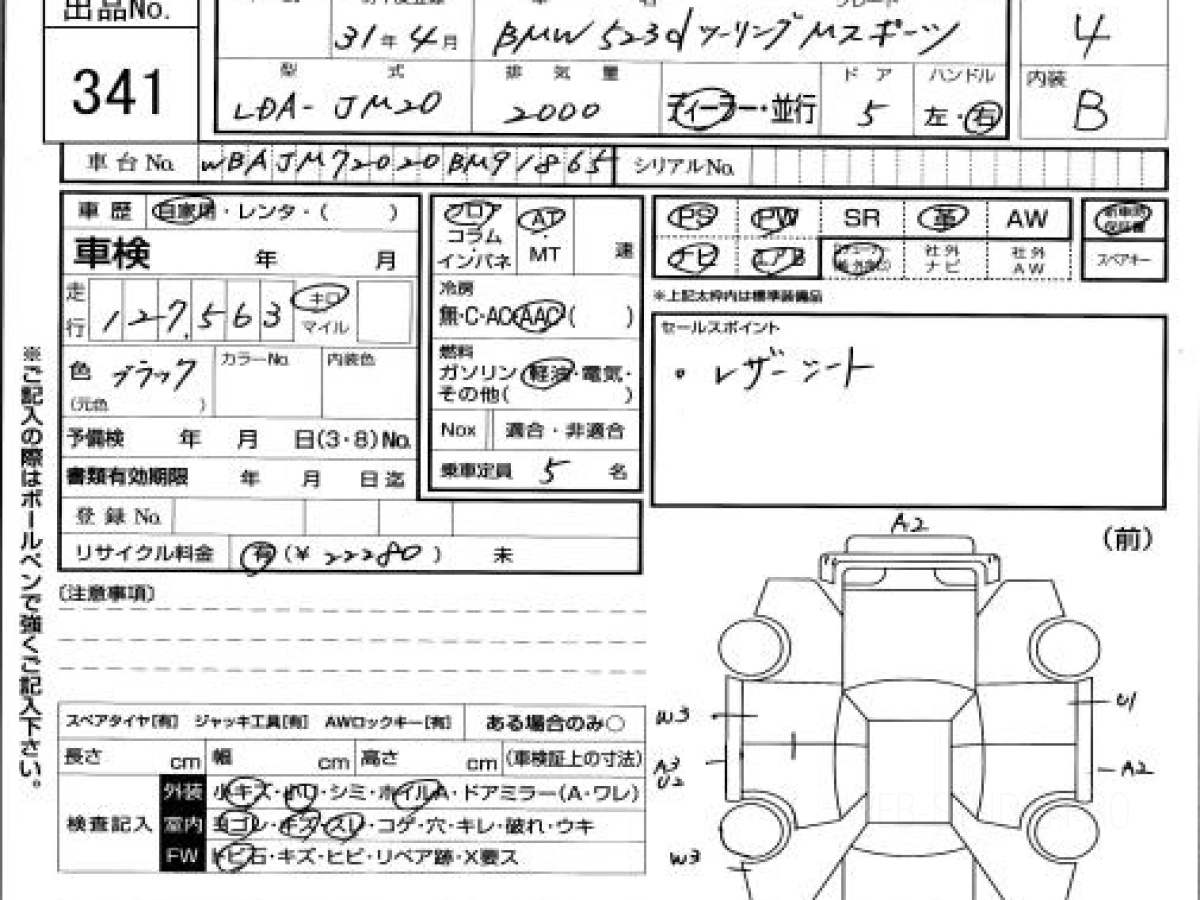 出品No.
341
31年4月
BMW 523d ツーリング Mスポーツ
4
型式
LDA-JM20
排気量
2000
ディーラー・並行
ドア
5
ハンドル
左・右
内装
B
車台No.
WBAJM72020BM91865
シリアルNo.
車歴
自家用・レンタ・( )
車検 年 月
走行
127,563
キロ
マイル
色 ブラック
(元色 )
カラーNo.
内装色
予備検 年 月 日(3・8)No.
書類有効期限 年 月 日迄
登録No.
リサイクル料金 有(¥22280) 未
フロア
コラム
インパネ
AT
MT
速
冷房
無・C・AC・AAC( )
燃料
ガソリン・軽油・電気・
その他( )
Nox
適合・非適合
乗車定員 5 名
PS PW SR 革 AW
ナビ エアB
社外
ナビ
社外
AW
スペアキー
※上記太枠内は標準装備品
セールスポイント
・レザーシート
※ご記入の際はボールペンで強くご記入下さい。
(注意事項)
スペアタイヤ[有] ジャッキ工具[有] AWロックキー[有] ある場合のみ○
長さ cm 幅 cm 高さ cm (車検証上の寸法)
検査記入
外装 小キズ・凹・シミ・ホイルA・ドアミラー(A・ワレ)
室内 ヨゴレ・キズ・スレ・コゲ・穴・キレ・破れ・ウキ
FW トビ石・キズ・ヒビ・リペア跡・X要ス
A2
(前)
W3
U1
A3
U2
A2
W3